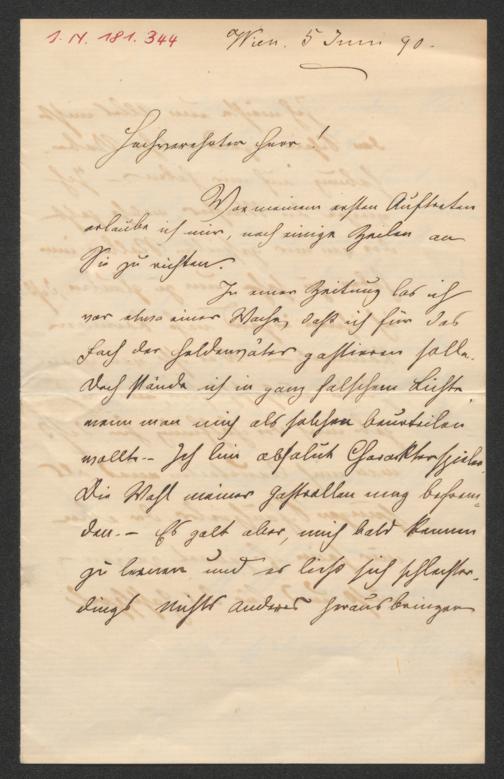 I. N. 181.344
Wien. 5 Juni 90.
Hochverehrter Herr!
Vor meinem ersten Auftreten
erlaube ich mir, noch einige Zeilen an
Sie zu richten.
In einer Zeitung las ich
vor etwa einer Woche, daß ich für das
Fach der Heldenväter gastieren solle.
Doch stände ich in ganz falschem Lichte
wenn man mich als solchen beurteilen
wollte. – Ich bin absolut Charakterspieler.
Die Wahl meiner Gastrollen mag befrem-
den. – Es galt aber, mich bald kennen
zu lernen und es ließ sich schlechter-
dings nichts anderes herausbringen